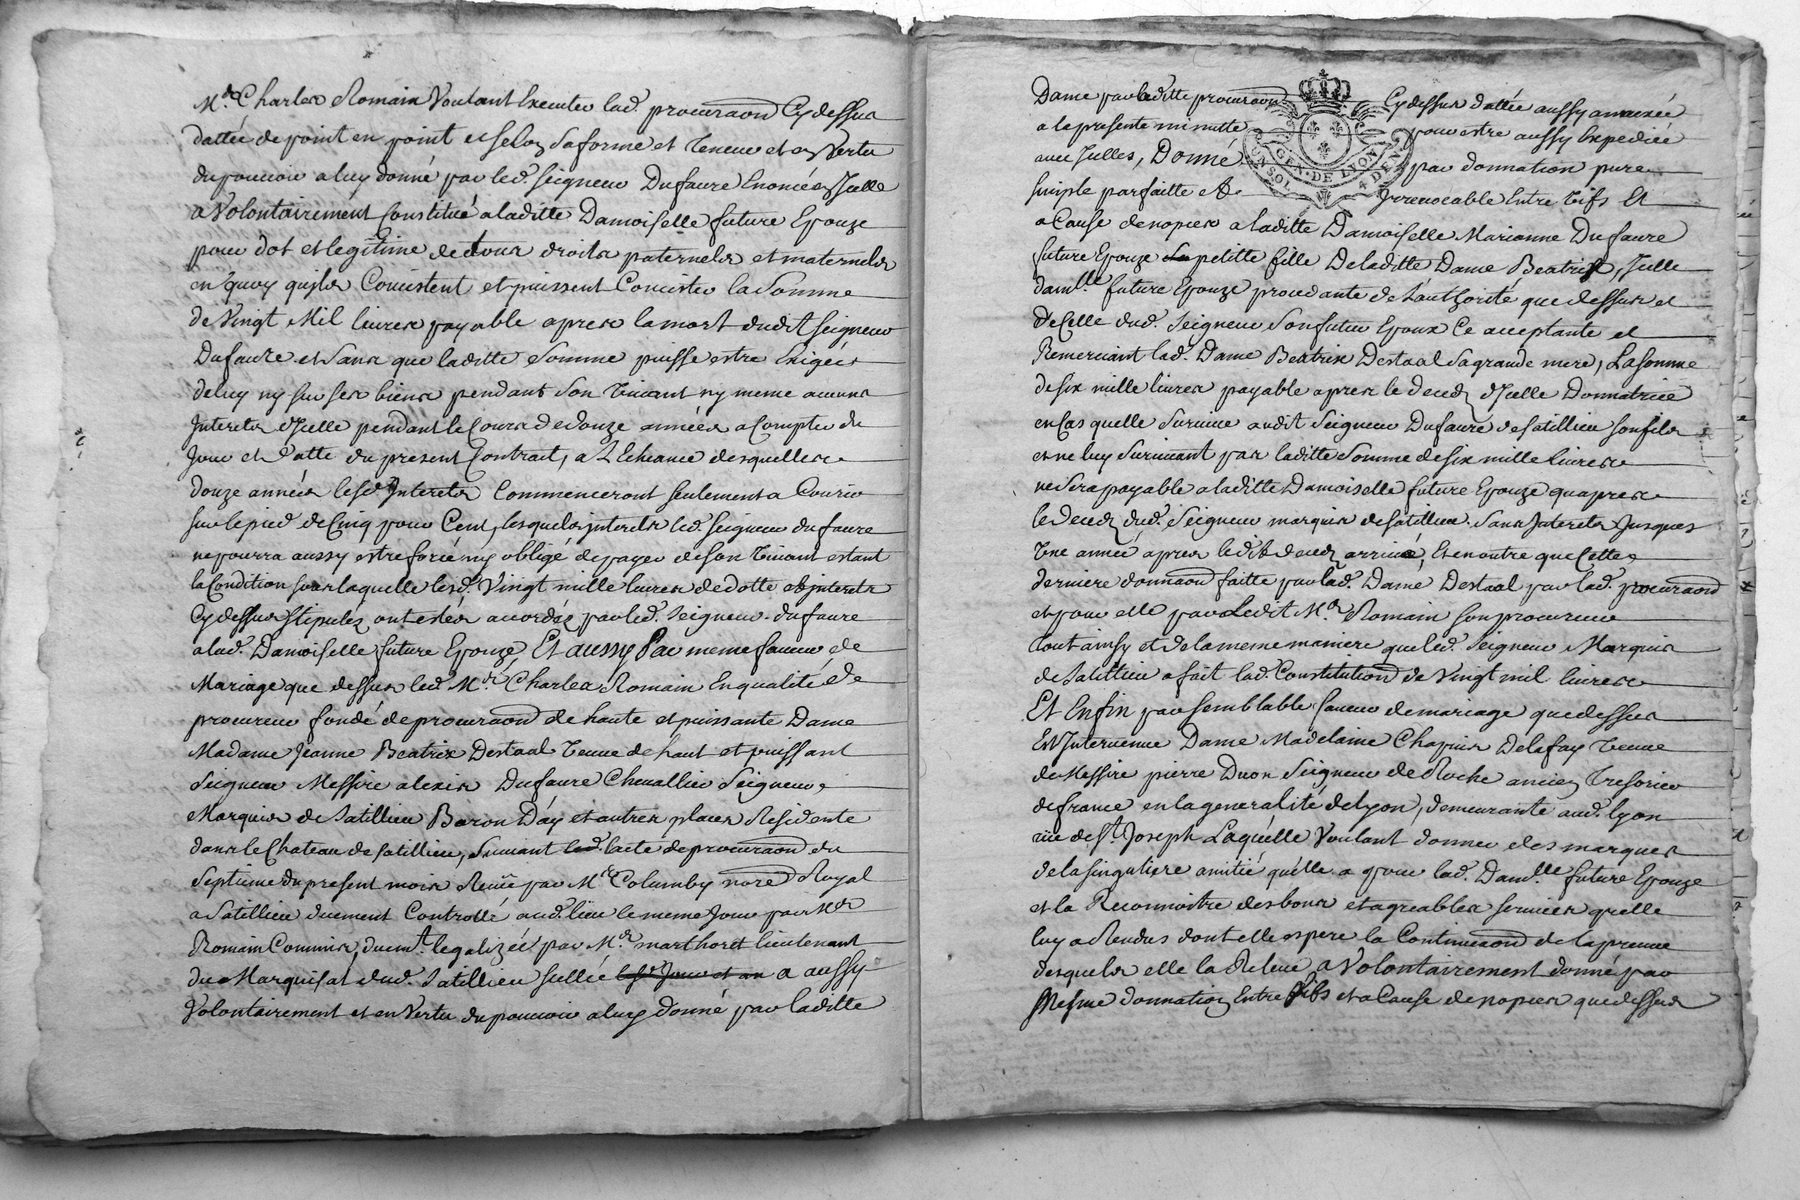 Mr. Charles Romain Voulant Executer lad. procuraon Cydessus
dattée de point en point et selon sa forme et Teneur et en Vertu
du pouvoir a luy donné par led. seigneur Dufaure Enoncé en Jcelle
a Volontairement Constitué a laditte Damoiselle future Epouze
pour dot et legitime de tous droits paternels et maternels
en quoy quils Concistent et puissent Concister la Somme
de Vingt Mil livres payable apres la mort dudit seigneur
Dufaure et sans que laditte Somme puisse estre Exigée
de luy ny sur ses biens pendant son Vivant ny meme aucuns
Jnterets d'Jcelle pendant le Cours de douze années a Compter du
Jour et datte du present Contrait, a L'Echeance desquelles
douze années lesd. Jnterets Commenceront seulement a Courir
sur le pied de Cinq pour Cent, lesquels jnterets led. seigneur dufaure
ne pourra aussy estre forcé ny obligé de payer de son Vivant estant
la Condition sous laquelle lesd. Vingt mille livres de dotte et jnterets
Cy dessus stipulés ont estés accordés par led. seigneur dufaure
a lad. Damoiselle future Epouze, Et aussy Par meme faveur de
Mariage que dessus led. Mr. Charles Romain En qualité de
procureur fondé de procuraon de haute et puissante Dame
Madame Jeanne Beatrix Destaal Veuve de haut et puissant
Seigneur Messire alexis Dufaure Chevallier Seigneur
Marquis de Satillieu Baron D'ay et autres places Residente
dans le Chateau de Satillieu, suivant led. lacte de procuraon du
septieme du present mois Receüe par Me Columby nore Royal
a Satillieu duement Controllé aud. lieu le meme Jour par Mr
Romain Commis, duemt. legalizée par Mr. marthoret lieutenant
du Marquisat dud. Satillieu scellée lesd. Jour et an a aussy
Volontairement et en Vertu du pouvoir a luy donné par laditte
Dame par laditte procuraon Cydessus dattée aussy annexée
a la presente minutte pour estre aussy Expediée
avec Jcelles, Donné par donnation pure
simple parfaitte et Jrrevocable Entre Vifs Et
a Cause de nopces a laditte Damoiselle Marianne Dufaure
future Epouze sa petitte fille De laditte Dame Beatrix, Jcelle
damlle future Epouze procedante de l'authorité que dessus et
de Celle dud. Seigneur son futur Epoux Ce acceptante et
Remerciant lad. Dame Beatrix Destaal sa grande mere, La somme
de six mille livres payable apres le decez d'Jcelle Donnatrice
en Cas quelle survive audit Seigneur Dufaure de Satillieu son fils
et ne luy survivant pas laditte Somme de six mille livres
ne sera payable a laditte Damoiselle future Epouze quapres
le decez dud. Seigneur marquis de Satillieu. Sans Jnterets Jusques
Une année apres ledit decez arrivé, Et en outre que Cette
derniere donnaon faitte par lad. Dame Destaal par lad. procuraon
et pour elle par Ledit Mr Romain son procureur
tout ainsy et de la meme maniere que led. Seigneur Marquis
de Satillieu a fait lad. Constitution de Vingt mil livres
Et Enfin par semblable faveur de mariage que dessus
Est Jntervenue Dame Madelaine Chapuis Delafay Veuve
de Messire pierre Duon Seigneur de Roche ancien Tresorier
de france en la generalité de lyon, demeurante aud. lyon
rüe de St. Joseph Laquelle Voulant donner des marques
de la singuliere amitié quelle a pour lad. Damlle future Epouze
et la Reconnoitre des bons et agreables services quelle
luy a Rendus dont elle espere la Continuaon de la preuve
desquels elle la Releve, a Volontairement donné par
Mesme donnation Entre Vifs et a Cause de nopces que dessus
GEN. DE LYON
4 DEN